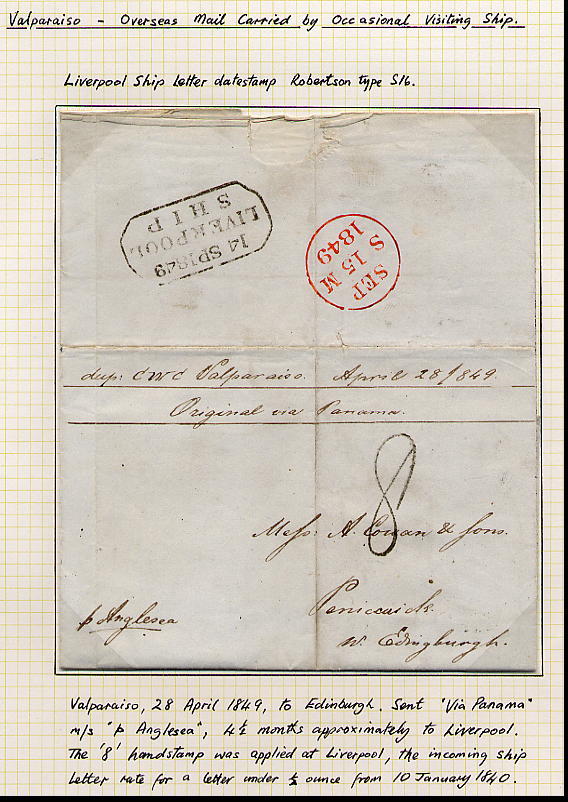 Valparaiso - Overseas Mail Carried by Occasional Visiting Ship.
Liverpool Ship Letter datestamp Robertson type S16.
SHIP
LIVERPOOL
14 SP 1849
SEP
15 M
S
1849
dup: Valparaiso. April 28/1849.
Original via Panama.
8
Mess: A. Cowan & Sons.
Peniccuick
nr. Edingburgh.
p Anglesea
Valparaiso, 28 April 1849, to Edinburgh. Sent "Via Panama"
m/s "p Anglesea", 4½ months approximately to Liverpool.
The '8' handstamp was applied at Liverpool, the incoming ship
letter rate for a letter under ½ ounce from 10 January 1840.